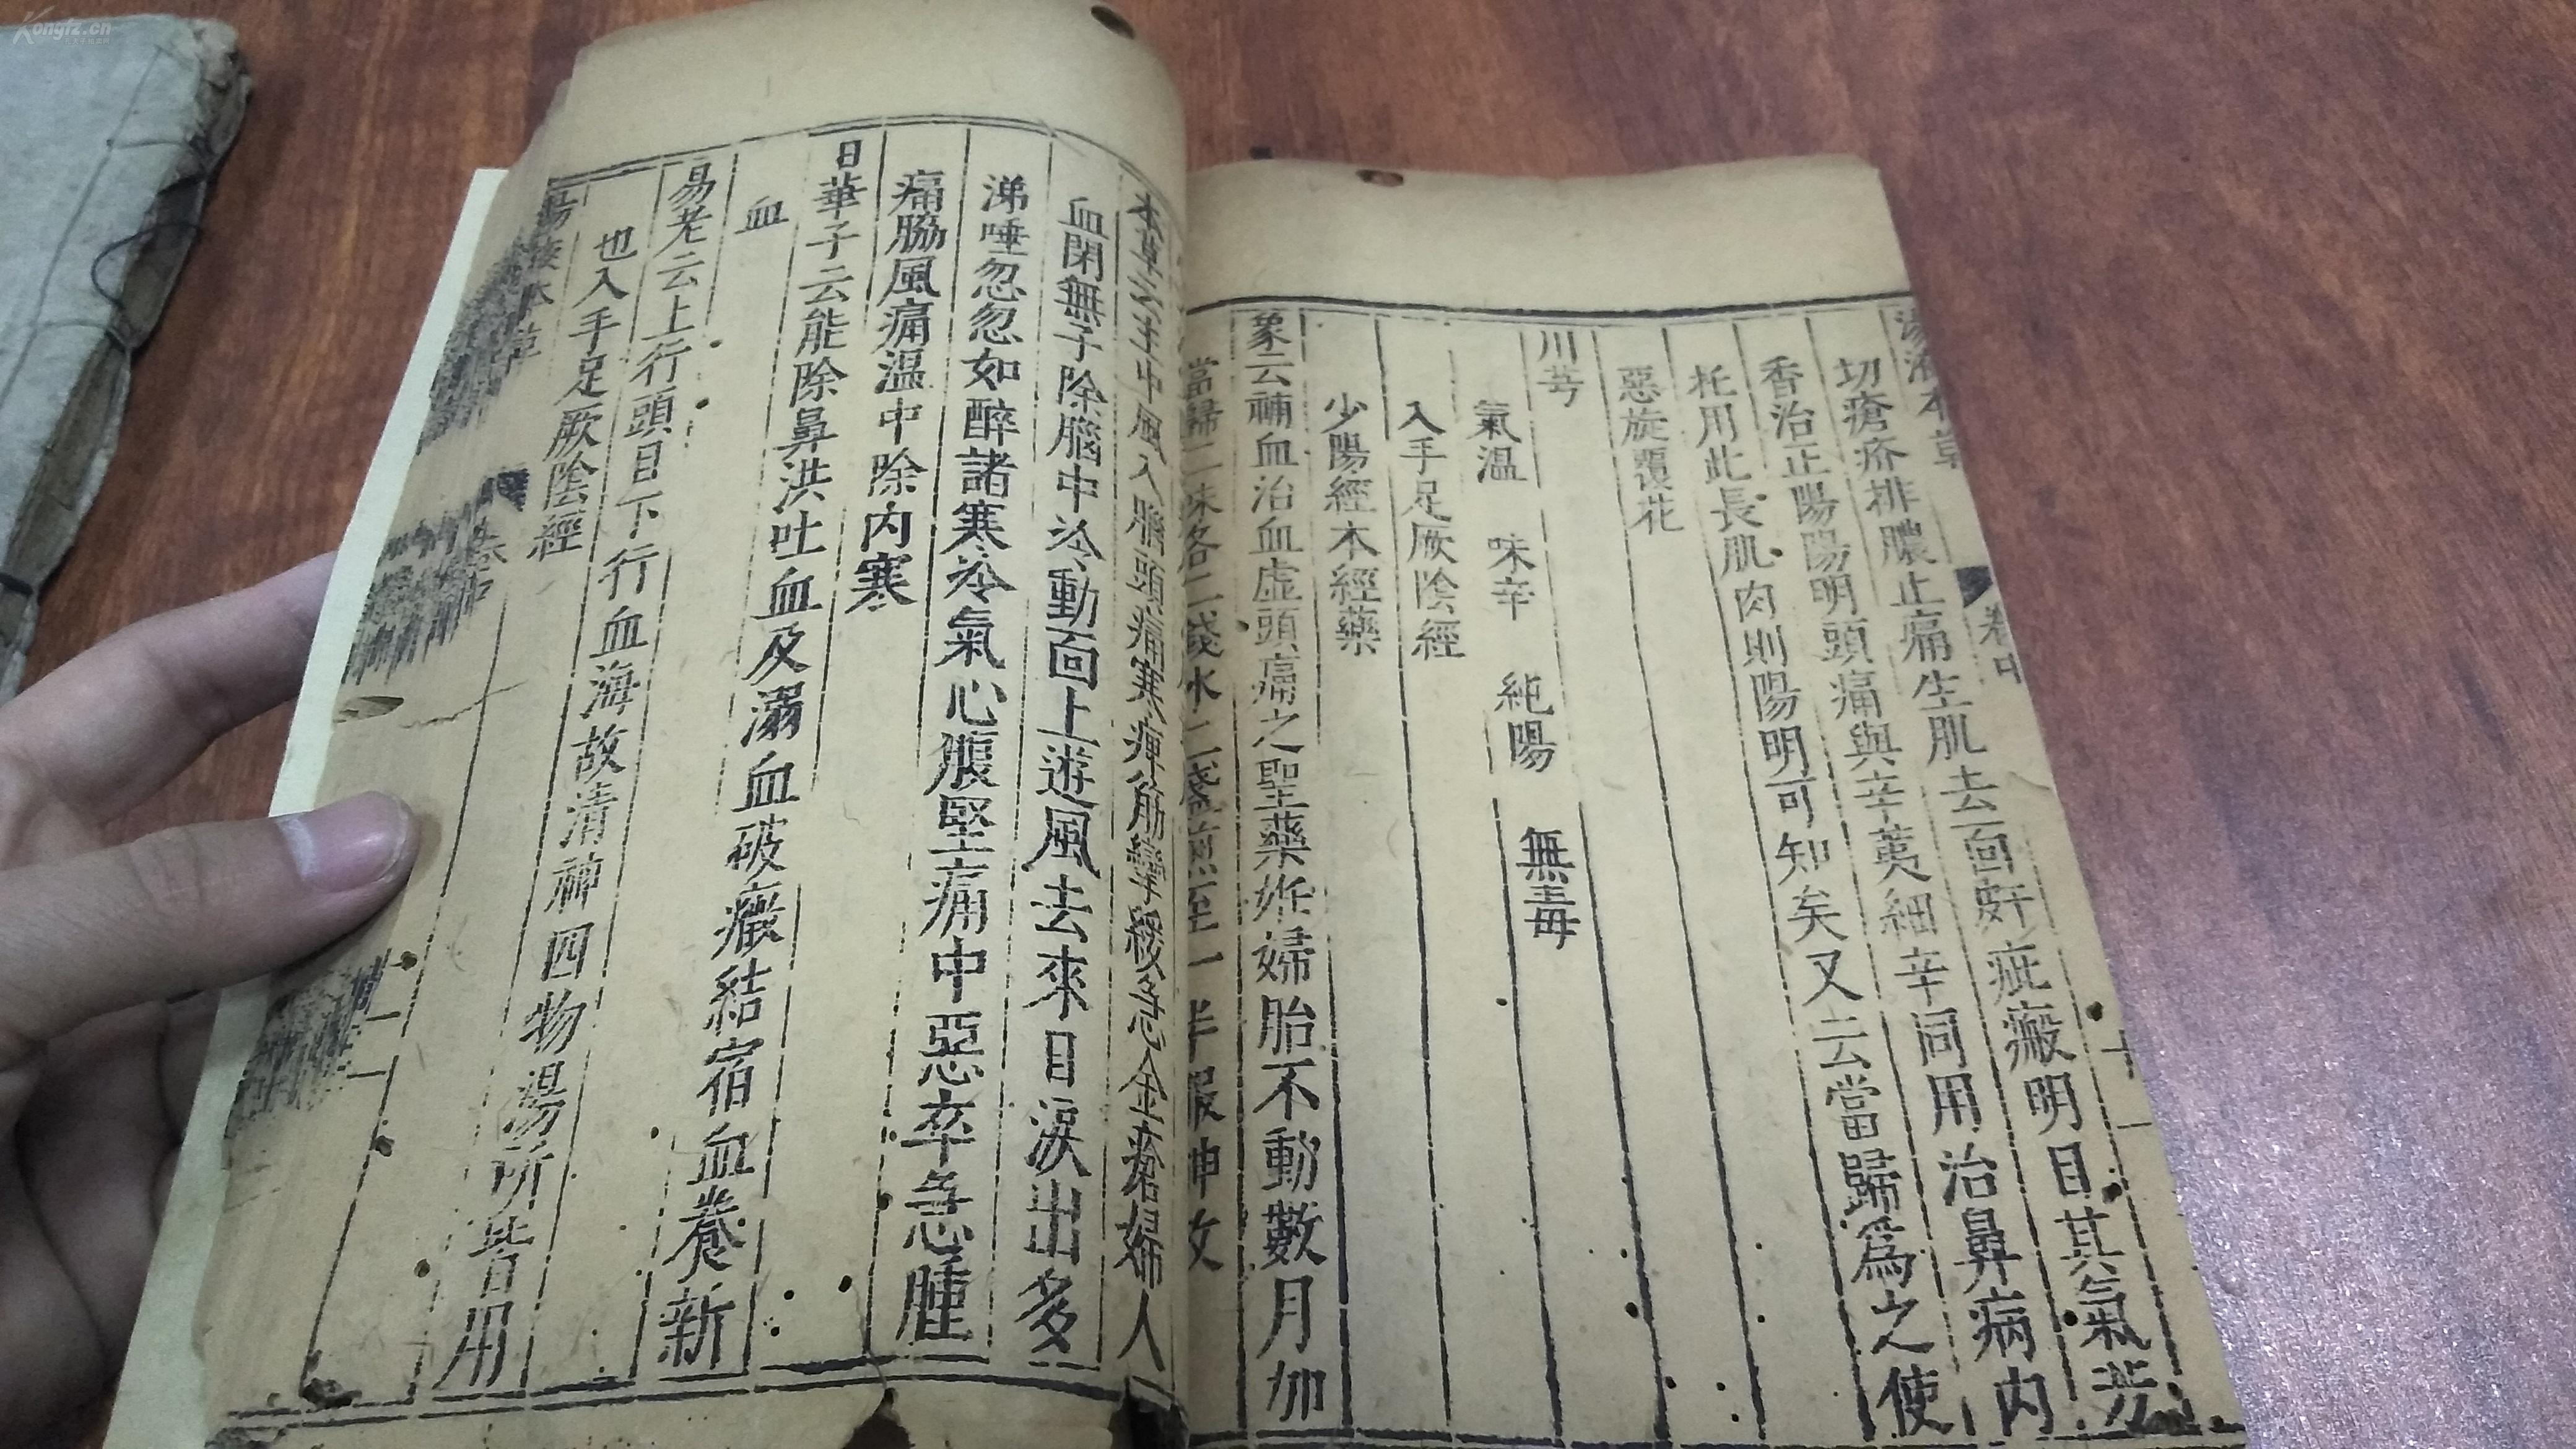 Kongfz.cn
湯液本草
卷中
十一
切瘡疥排膿止痛生肌去面皯疵瘢明目其氣芳
香治正陽陽明頭痛與辛荑細辛同用治鼻病内
托用此長肌肉則陽明可知矣又云當歸爲之使
惡旋覆花
川芎
氣温 味辛 純陽 無毒
入手足厥陰經
少陽經本經藥
象云補血治血虛頭痛之聖藥姙婦胎不動數月加
當歸二味各二錢水二盞煎至一半服神效
本草云主中風入腦頭痛寒痺筋攣緩急金瘡婦人
血閉無子除腦中冷動面上遊風去來目淚出多
涕唾忽忽如醉諸寒冷氣心腹堅痛中惡卒急腫
痛脇風痛温中除内寒
日華子云能除鼻洪吐血及溺血破癥結宿血養新
血
易老云上行頭目下行血海故清神四物湯所皆用
也入手足厥陰經
湯液本草
卷中